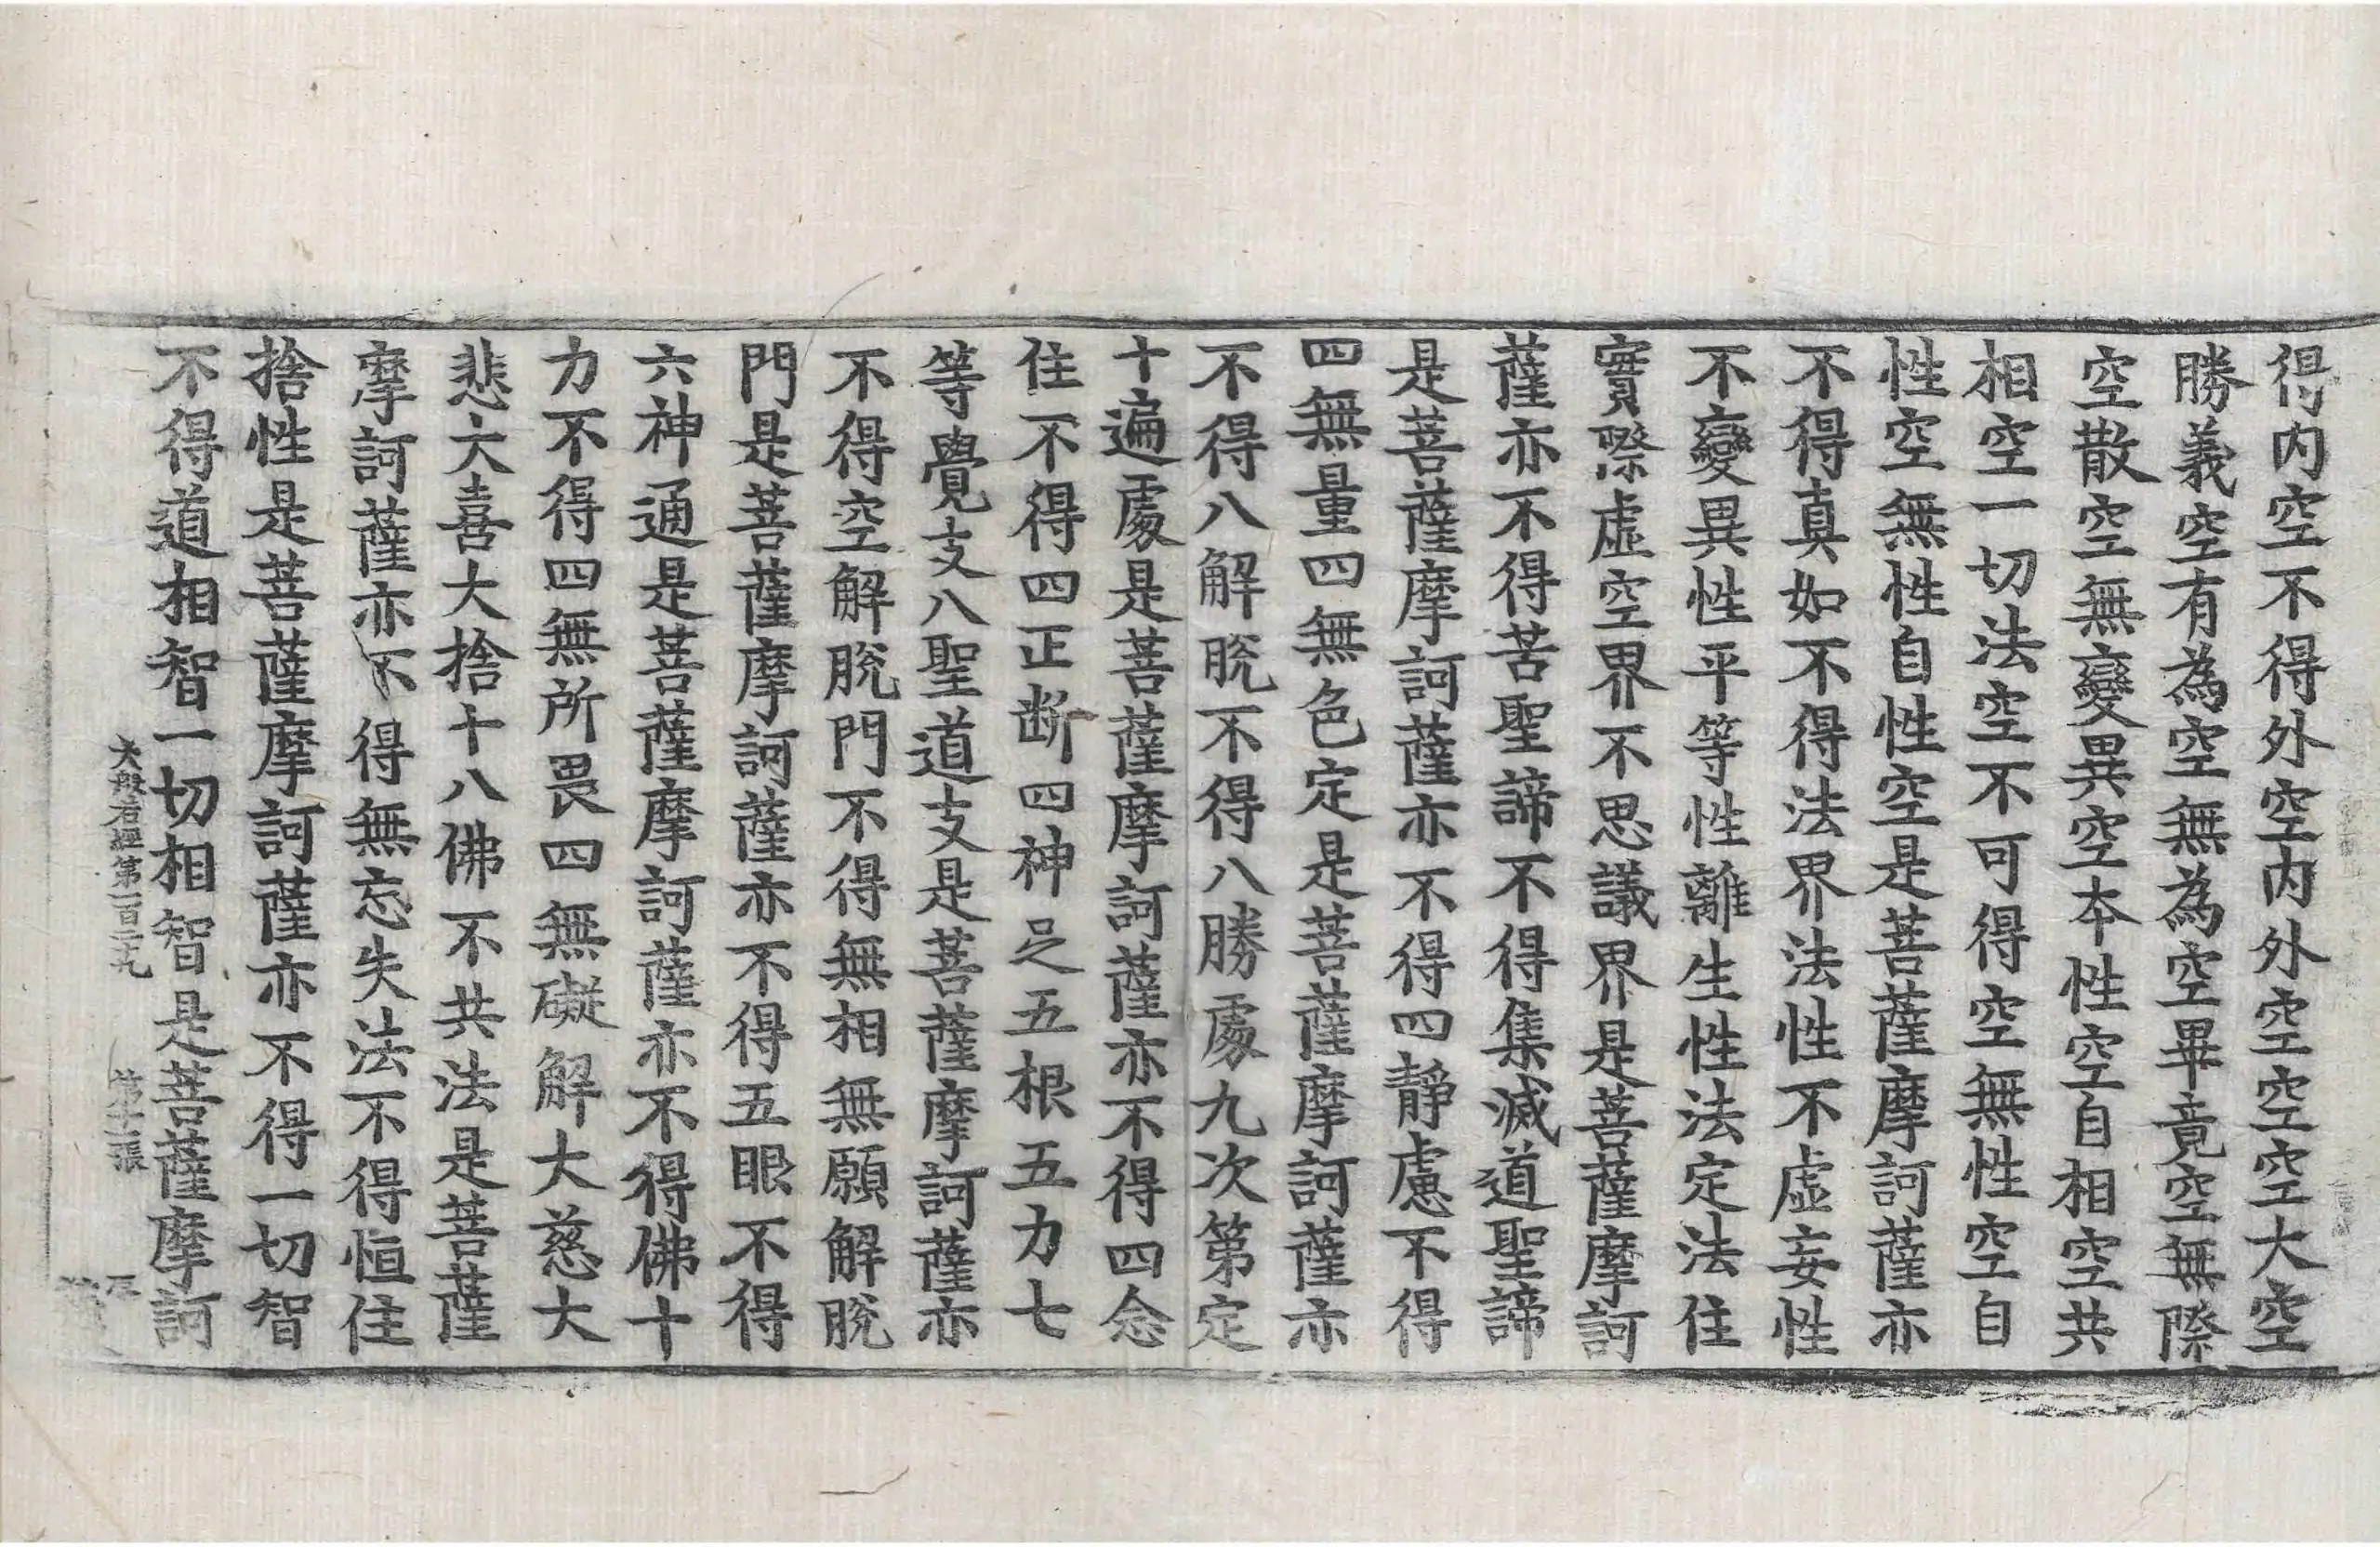 得内空不得外空内外空空空大空
勝義空有為空無為空畢竟空無際
空散空無變異空本性空自相空共
相空一切法空不可得空無性空自
性空無性自性空是菩薩摩訶薩亦
不得真如不得法界法性不虛妄性
不變異性平等性離生性法定法住
實際虛空界不思議界是菩薩摩訶
薩亦不得苦聖諦不得集滅道聖諦
是菩薩摩訶薩亦不得四靜慮不得
四無量四無色定是菩薩摩訶薩亦
不得八解脫不得八勝處九次第定
十遍處是菩薩摩訶薩亦不得四念
住不得四正断四神足五根五力七
等覺支八聖道支是菩薩摩訶薩亦
不得空解脫門不得無相無願解脫
門是菩薩摩訶薩亦不得五眼不得
六神通是菩薩摩訶薩亦不得佛十
力不得四無所畏四無礙解大慈大
悲大喜大捨十八佛不共法是菩薩
摩訶薩亦不得無忘失法不得恒住
捨性是菩薩摩訶薩亦不得一切智
不得道相智一切相智是菩薩摩訶
大般若經第一百二十九 第十二張